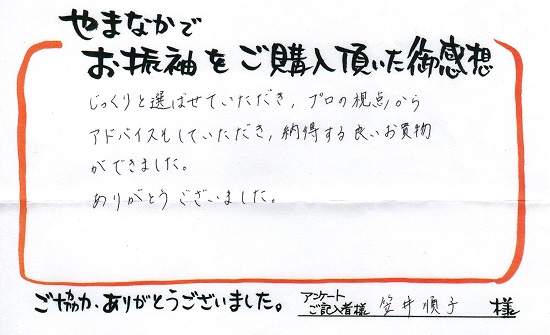 やまなかで
お振袖をご購入頂いた御感想
じっくりと選ばせていただき, プロの視点から
アドバイスもしていただき, 納得する良いお買物
ができました。
ありがとうございました。
ご協力、ありがとうございました。 アンケートご記入者様 笠井順子 様